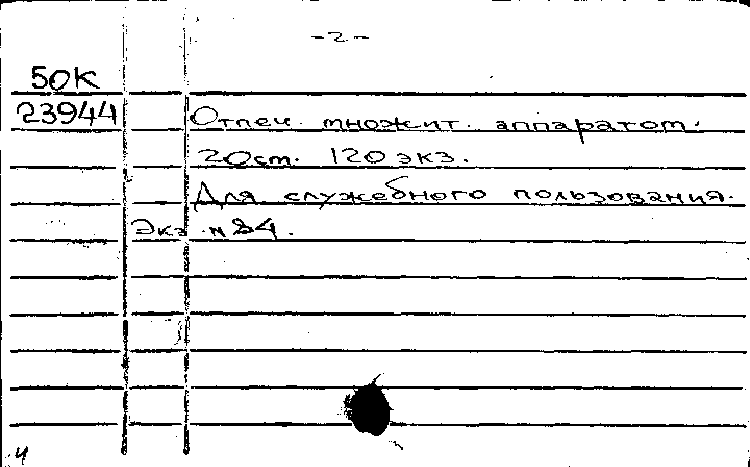 -2-
50К
23944
Отпеч. множит. аппаратом.
20ст. 120 экз.
Для служебного пользования.
Экз. № 84.
4